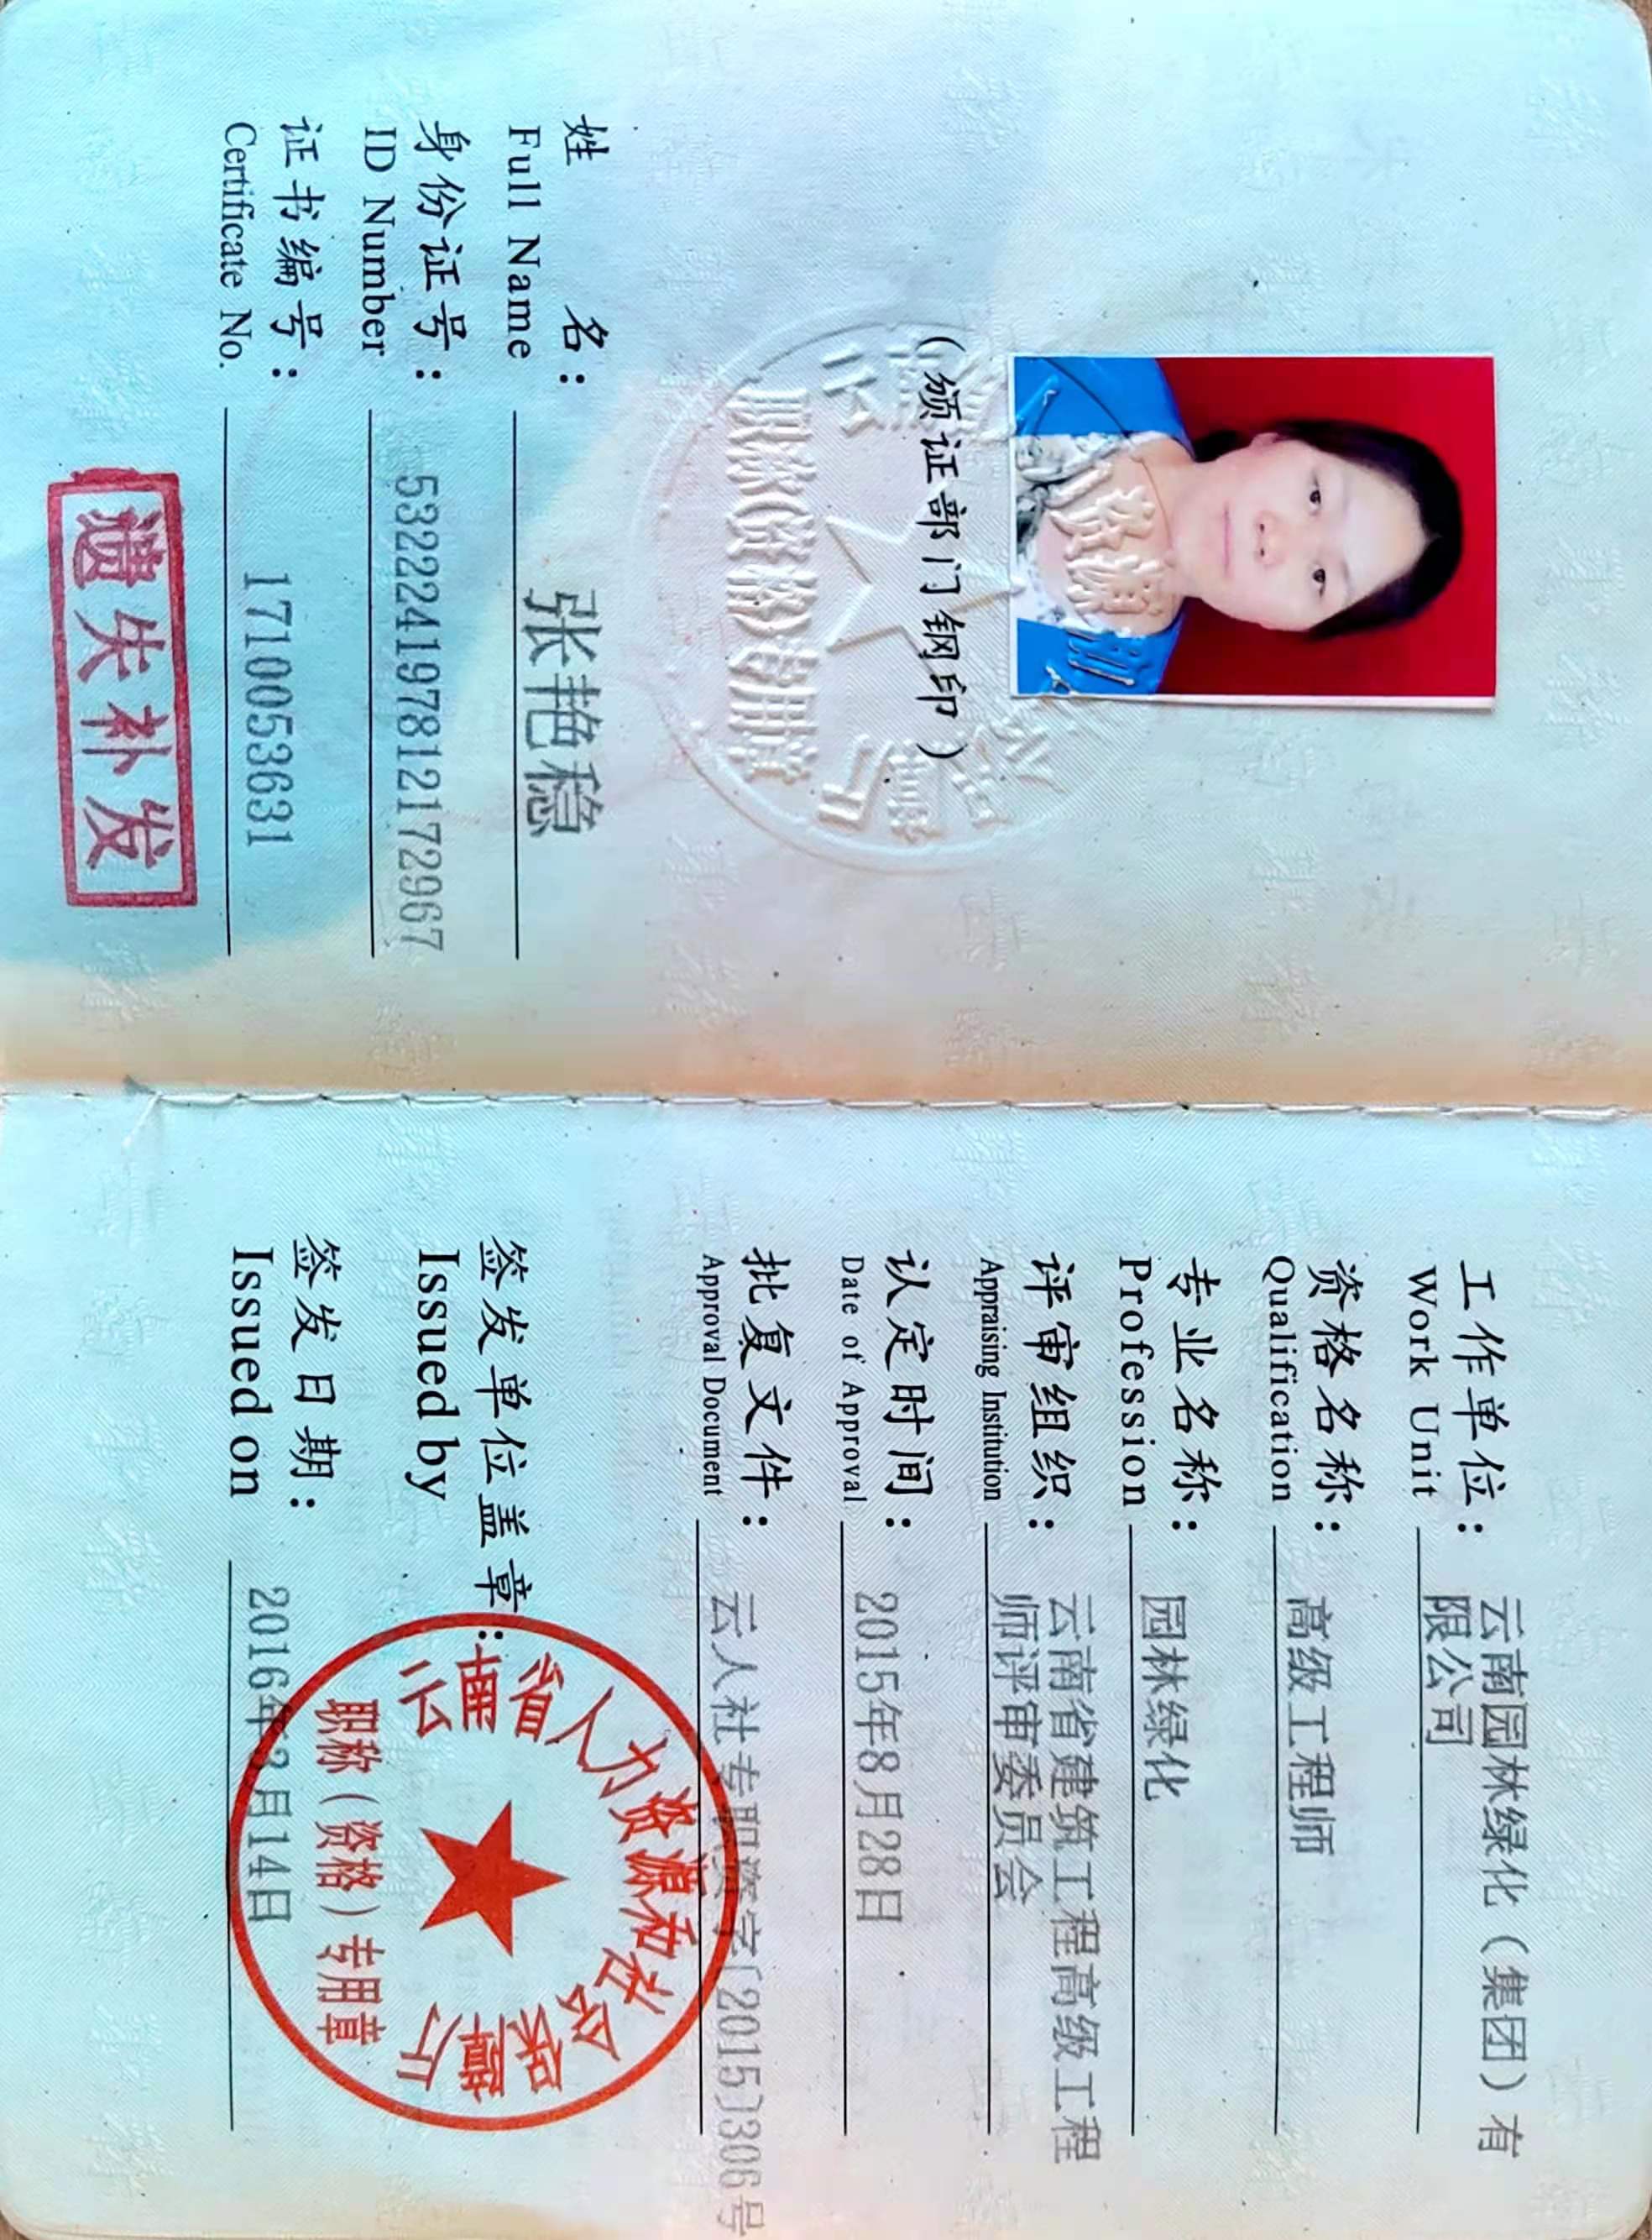 （颁证部门钢印）
职称(资格)专用章
姓 名： 张艳稳
Full Name
身份证号： 532224197812172967
ID Number
证书编号： 1710053631
Certificate No.
遗失补发
工作单位： 云南园林绿化（集团）有
Work Unit 限公司
资格名称： 高级工程师
Qualification
专业名称： 园林绿化
Profession
评审组织： 云南省建筑工程高级工程
Appraising Institution 师评审委员会
认定时间： 2015年8月28日
Date of Approval
批复文件： 云人社专职资字〔2015〕306号
Approval Document
签发单位盖章：
Issued by
云南省人力资源和社会保障厅
职称（资格）专用章
签发日期： 2016年 月14日
Issued on